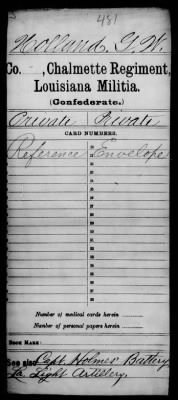 481
Holland, T. W.
Co. , Chalmette Regiment,
Louisiana Militia.
(Confederate.)
Private | Private
CARD NUMBERS.
Reference Envelope
Number of medical cards herein
Number of personal papers herein
BOOK MARK:
See also Capt. Holmes' Battery
La. Light Artillery.